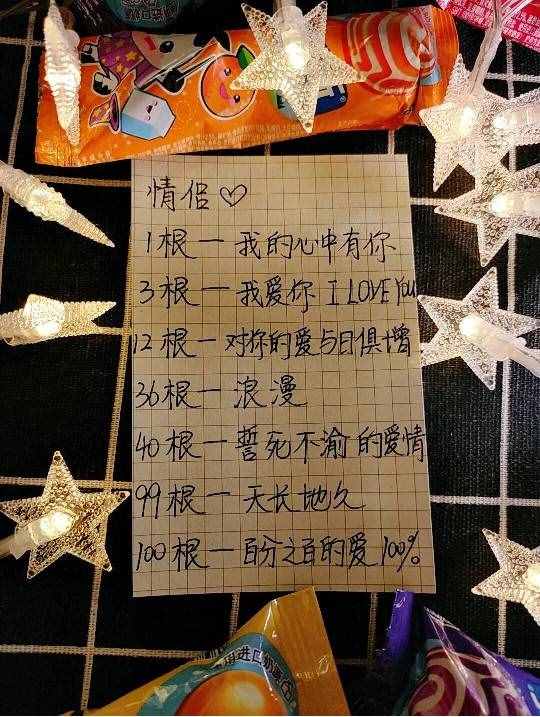 情侣♡
1根一我的心中有你
3根一我爱你 I LOVE You
12根一对你的爱与日俱增
36根一浪漫
40根一誓死不渝的爱情
99根一天长地久
100根一百分之百的爱100%